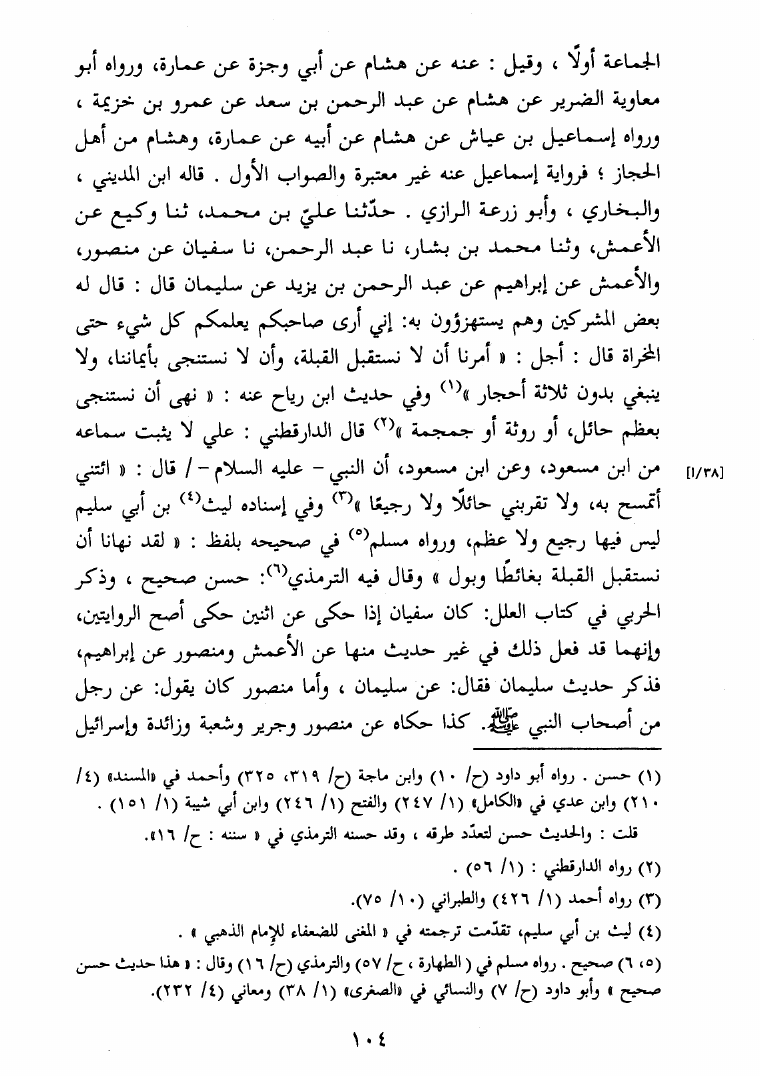 الجماعة أولًا ، وقيل : عنه عن هشام عن أبي وجزة عن عمارة، ورواه أبو
معاوية الضرير عن هشام عن عبد الرحمن بن سعد عن عمرو بن خزيمة ،
ورواه إسماعيل بن عياش عن هشام عن أبيه عن عمارة، وهشام من أهل
الحجاز ؛ فرواية إسماعيل عنه غير معتبرة والصواب الأول . قاله ابن المديني ،
والبخاري ، وأبو زرعة الرازي . حدّثنا عليّ بن محمد، ثنا وكيع عن
الأعمش، وثنا محمد بن بشار، نا عبد الرحمن، نا سفيان عن منصور،
والأعمش عن إبراهيم عن عبد الرحمن بن يزيد عن سليمان قال : قال له
بعض المشركين وهم يستهزؤون به: إني أرى صاحبكم يعلمكم كل شيء حتى
الخراة قال : أجل : « أمرنا أن لا نستقبل القبلة، وأن لا نستنجى بأيماننا، ولا
ينبغي بدون ثلاثة أحجار »(١) وفي حديث ابن رياح عنه : « نهى أن نستنجى
بعظم حائل، أو روثة أو جمجمة »(٢) قال الدارقطني : علي لا يثبت سماعه
من ابن مسعود، وعن ابن مسعود، أن النبي - عليه السلام - / قال : « ائتني [٣٨/ا]
أتمسح به، ولا تقربني حائلًا ولا رجيعًا »(٣) وفي إسناده ليث(٤) بن أبي سليم
ليس فيها رجيع ولا عظم، ورواه مسلم(٥) في صحيحه بلفظ : « لقد نهانا أن
نستقبل القبلة بغائطًا وبول » وقال فيه الترمذي(٦): حسن صحيح ، وذكر
الحربي في كتاب العلل: كان سفيان إذا حكى عن اثنين حكى أصح الروايتين،
وإنهما قد فعل ذلك في غير حديث منها عن الأعمش ومنصور عن إبراهيم،
فذكر حديث سليمان فقال: عن سليمان ، وأما منصور كان يقول: عن رجل
من أصحاب النبي ﷺ. كذا حكاه عن منصور وجرير وشعبة وزائدة وإسرائيل
(١) حسن . رواه أبو داود (ح/ ١٠) وابن ماجة (ح/ ٣١٩، ٣٢٥) وأحمد في «المسند» (٤/
٢١٠) وابن عدي في «الكامل» (١/ ٢٤٧) والفتح (١/ ٢٤٦) وابن أبي شيبة (١/ ١٥١) .
قلت : والحديث حسن لتعدّد طرقه ، وقد حسنه الترمذي في « سننه : ح/ ١٦».
(٢) رواه الدارقطني : (١/ ٥٦) .
(٣) رواه أحمد (١/ ٤٢٦) والطبراني (١٠/ ٧٥).
(٤) ليث بن أبي سليم، تقدّمت ترجمته في « المغنى للضعفاء للإمام الذهبي » .
(٥، ٦) صحيح . رواه مسلم في ( الطهارة ، ح/ ٥٧) والترمذي (ح/ ١٦) وقال : « هذا حديث حسن
صحيح » وأبو داود (ح/ ٧) والنسائي في «الصغرى» (١/ ٣٨) ومعاني (٤/ ٢٣٢).
١٠٤